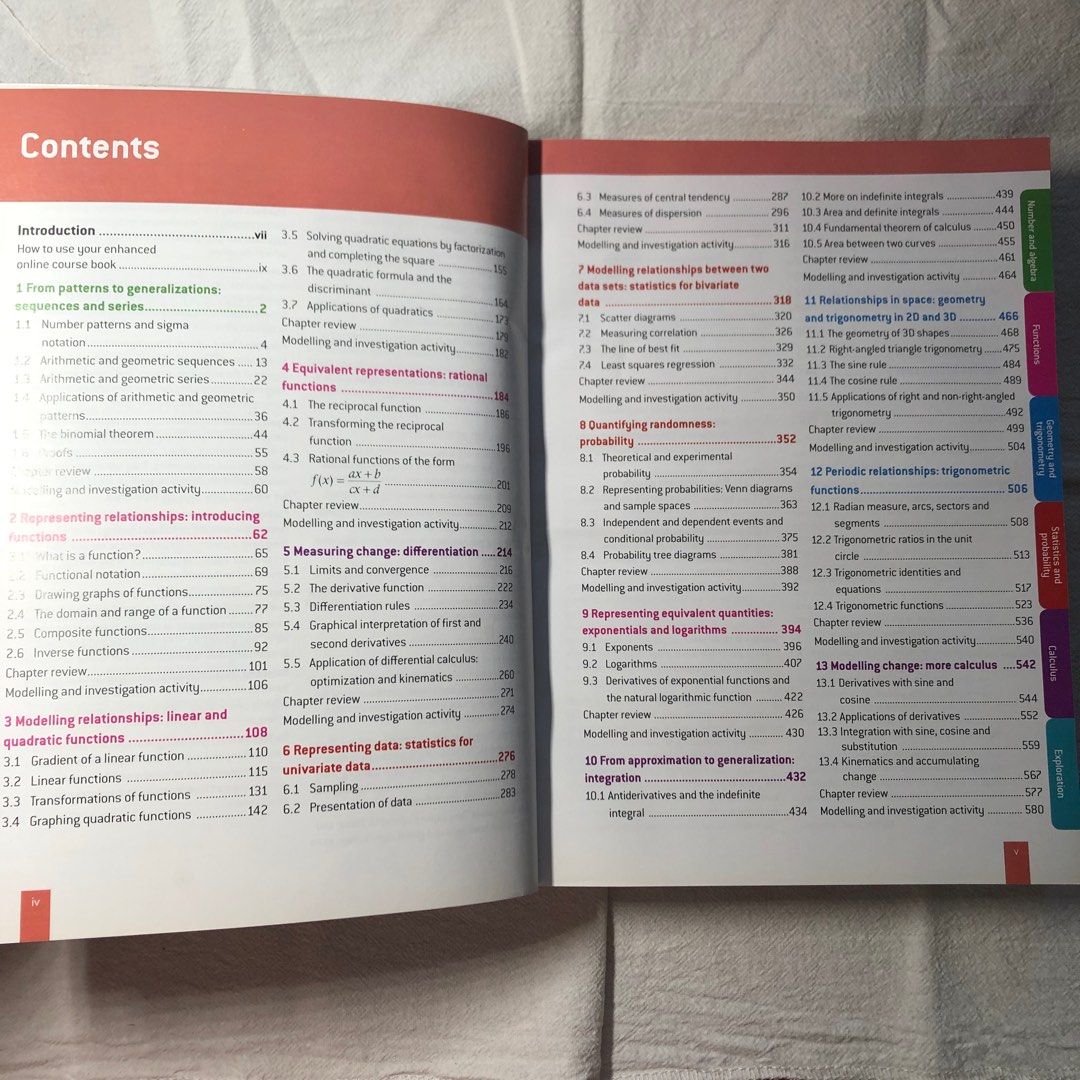 Contents
Introduction ........ vii
How to use your enhanced
online course book ........ ix
1 From patterns to generalizations:
sequences and series ........ 2
1.1 Number patterns and sigma
notation ........ 4
1.2 Arithmetic and geometric sequences .... 13
1.3 Arithmetic and geometric series ........ 22
1.4 Applications of arithmetic and geometric
patterns ........ 36
1.5 The binomial theorem ........ 44
1.6 Proofs ........ 55
Chapter review ........ 58
Modelling and investigation activity ........ 60
2 Representing relationships: introducing
functions ........ 62
2.1 What is a function? ........ 65
2.2 Functional notation ........ 69
2.3 Drawing graphs of functions ........ 75
2.4 The domain and range of a function ........ 77
2.5 Composite functions ........ 85
2.6 Inverse functions ........ 92
Chapter review ........ 101
Modelling and investigation activity ........ 106
3 Modelling relationships: linear and
quadratic functions ........ 108
3.1 Gradient of a linear function ........ 110
3.2 Linear functions ........ 115
3.3 Transformations of functions ........ 131
3.4 Graphing quadratic functions ........ 142
3.5 Solving quadratic equations by factorization
and completing the square ........ 155
3.6 The quadratic formula and the
discriminant ........ 164
3.7 Applications of quadratics ........ 173
Chapter review ........ 179
Modelling and investigation activity ........ 182
4 Equivalent representations: rational
functions ........ 184
4.1 The reciprocal function ........ 186
4.2 Transforming the reciprocal
function ........ 196
4.3 Rational functions of the form
f(x) = (ax + b)/(cx + d) ........ 201
Chapter review ........ 209
Modelling and investigation activity ........ 212
5 Measuring change: differentiation ..... 214
5.1 Limits and convergence ........ 216
5.2 The derivative function ........ 222
5.3 Differentiation rules ........ 234
5.4 Graphical interpretation of first and
second derivatives ........ 240
5.5 Application of differential calculus:
optimization and kinematics ........ 260
Chapter review ........ 271
Modelling and investigation activity ........ 274
6 Representing data: statistics for
univariate data ........ 276
6.1 Sampling ........ 278
6.2 Presentation of data ........ 283
iv
6.3 Measures of central tendency ........ 287
6.4 Measures of dispersion ........ 296
Chapter review ........ 311
Modelling and investigation activity ........ 316
7 Modelling relationships between two
data sets: statistics for bivariate
data ........ 318
7.1 Scatter diagrams ........ 320
7.2 Measuring correlation ........ 326
7.3 The line of best fit ........ 329
7.4 Least squares regression ........ 332
Chapter review ........ 344
Modelling and investigation activity ........ 350
8 Quantifying randomness:
probability ........ 352
8.1 Theoretical and experimental
probability ........ 354
8.2 Representing probabilities: Venn diagrams
and sample spaces ........ 363
8.3 Independent and dependent events and
conditional probability ........ 375
8.4 Probability tree diagrams ........ 381
Chapter review ........ 388
Modelling and investigation activity ........ 392
9 Representing equivalent quantities:
exponentials and logarithms ........ 394
9.1 Exponents ........ 396
9.2 Logarithms ........ 407
9.3 Derivatives of exponential functions and
the natural logarithmic function ........ 422
Chapter review ........ 426
Modelling and investigation activity ........ 430
10 From approximation to generalization:
integration ........ 432
10.1 Antiderivatives and the indefinite
integral ........ 434
10.2 More on indefinite integrals ........ 439
10.3 Area and definite integrals ........ 444
10.4 Fundamental theorem of calculus ........ 450
10.5 Area between two curves ........ 455
Chapter review ........ 461
Modelling and investigation activity ........ 464
11 Relationships in space: geometry
and trigonometry in 2D and 3D ........ 466
11.1 The geometry of 3D shapes ........ 468
11.2 Right-angled triangle trigonometry ...... 475
11.3 The sine rule ........ 484
11.4 The cosine rule ........ 489
11.5 Applications of right and non-right-angled
trigonometry ........ 492
Chapter review ........ 499
Modelling and investigation activity ........ 504
12 Periodic relationships: trigonometric
functions ........ 506
12.1 Radian measure, arcs, sectors and
segments ........ 508
12.2 Trigonometric ratios in the unit
circle ........ 513
12.3 Trigonometric identities and
equations ........ 517
12.4 Trigonometric functions ........ 523
Chapter review ........ 536
Modelling and investigation activity ........ 540
13 Modelling change: more calculus .... 542
13.1 Derivatives with sine and
cosine ........ 544
13.2 Applications of derivatives ........ 552
13.3 Integration with sine, cosine and
substitution ........ 559
13.4 Kinematics and accumulating
change ........ 567
Chapter review ........ 577
Modelling and investigation activity ........ 580
v
Number and algebra
Functions
Geometry and
trigonometry
Statistics and
probability
Calculus
Exploration